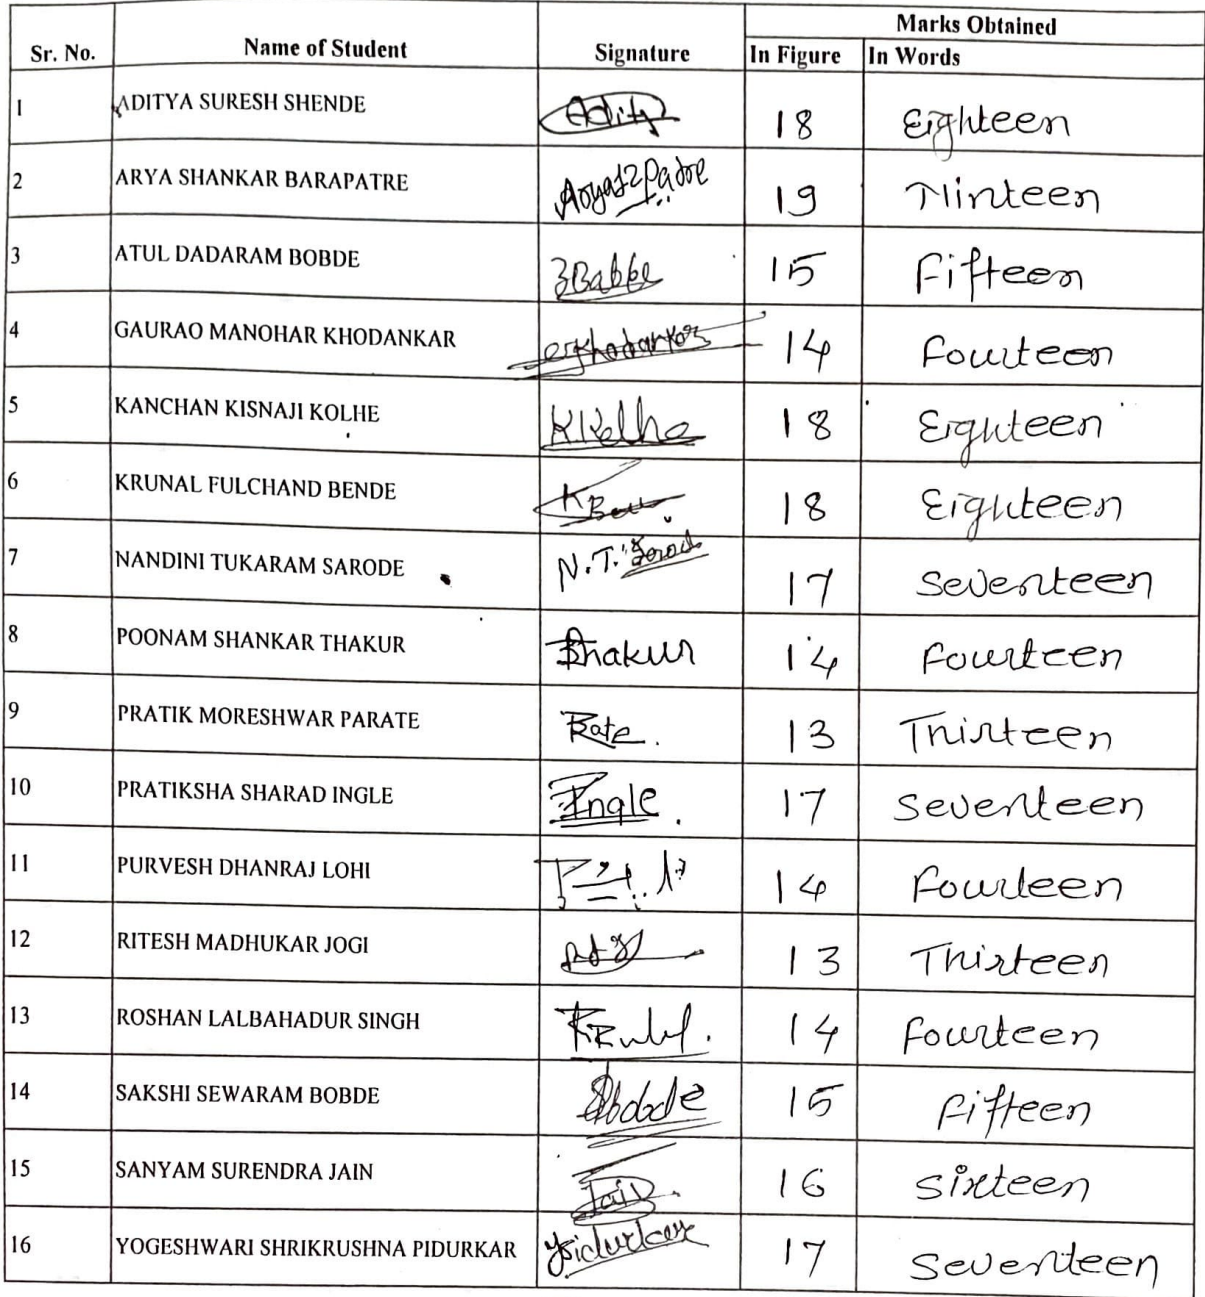 Sr. No. Name of Student Signature Marks Obtained
In Figure In Words
1 ADITYA SURESH SHENDE Aditya 18 Eighteen
2 ARYA SHANKAR BARAPATRE 19 Ninteen
3 ATUL DADARAM BOBDE 15 Fifteen
4 GAURAO MANOHAR KHODANKAR 14 Fourteen
5 KANCHAN KISNAJI KOLHE K.Kolhe 18 Eighteen
6 KRUNAL FULCHAND BENDE 18 Eighteen
7 NANDINI TUKARAM SARODE N.T. Sarode 17 Seventeen
8 POONAM SHANKAR THAKUR Thakur 14 Fourteen
9 PRATIK MORESHWAR PARATE 13 Thirteen
10 PRATIKSHA SHARAD INGLE Ingle 17 Seventeen
11 PURVESH DHANRAJ LOHI 14 Fourteen
12 RITESH MADHUKAR JOGI 13 Thirteen
13 ROSHAN LALBAHADUR SINGH 14 Fourteen
14 SAKSHI SEWARAM BOBDE Sbobde 15 Fifteen
15 SANYAM SURENDRA JAIN Jain 16 Sixteen
16 YOGESHWARI SHRIKRUSHNA PIDURKAR 17 Seventeen